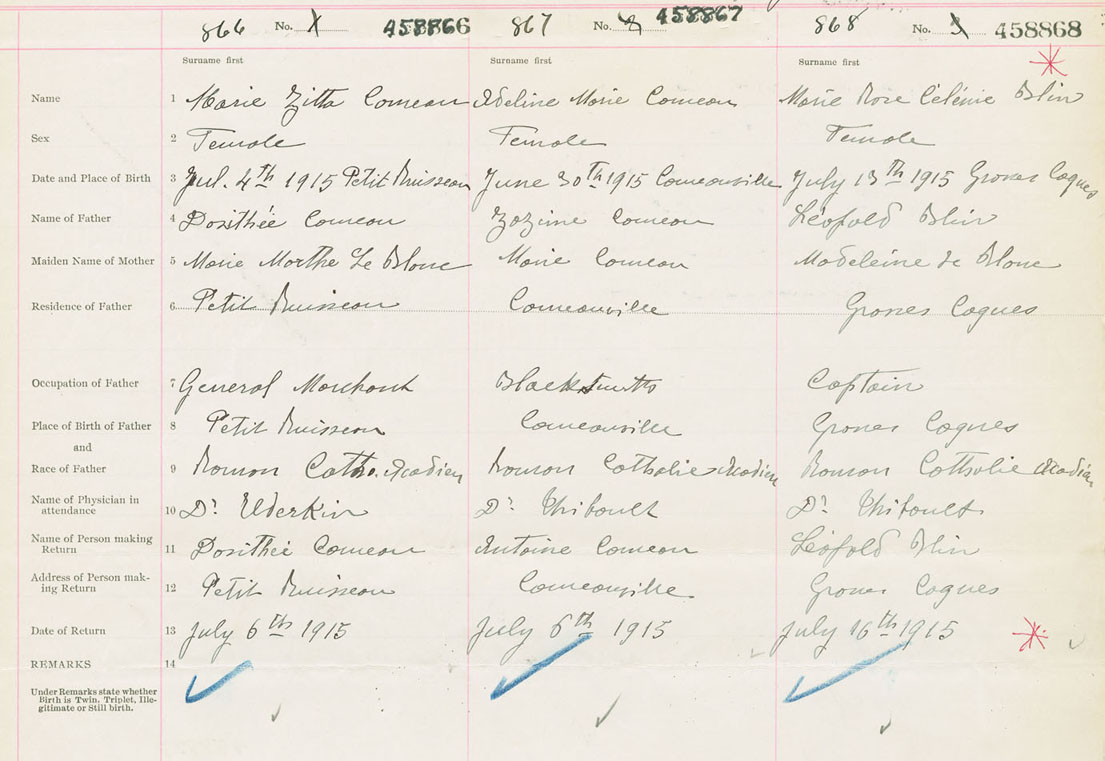 866 No. 1 458866 867 No. 2 458867 868 No. 3 458868
Surname first Surname first Surname first
Name 1 Marie Zitta Comeau Adeline Marie Comeau Marie Rose Célénie Blin
Sex 2 Female Female Female
Date and Place of Birth 3 Jul. 4th 1915 Petit Ruisseau June 30th 1915 Comeauville July 13th 1915 Grosses Coques
Name of Father 4 Dosithée Comeau Zozime Comeau Léofold Blin
Maiden Name of Mother 5 Marie Marthe Le Blanc Marie Comeau Madeleine Le Blanc
Residence of Father 6 Petit Ruisseau Comeauville Grosses Coques
Occupation of Father 7 General Merchant Blacksmith Captain
Place of Birth of Father 8 Petit Ruisseau Comeauville Grosses Coques
and
Race of Father 9 Roman Catho. Acadian Roman Catholic Acadian Roman Catholic Acadian
Name of Physician in
attendance 10 Dr Elderkin Dr Thibault Dr Thibault
Name of Person making
Return 11 Dosithée Comeau Antoine Comeau Léofold Blin
Address of Person mak-
ing Return 12 Petit Ruisseau Comeauville Grosses Coques
Date of Return 13 July 6th 1915 July 6th 1915 July 16th 1915
REMARKS 14
Under Remarks state whether
Birth is Twin, Triplet, Ille-
gitimate or Still birth.